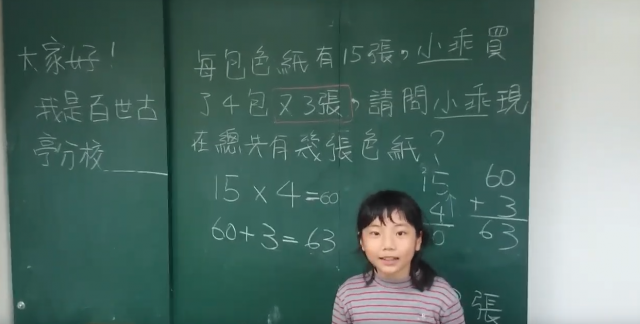 大家好！
我是百世古
亭分校
每包色紙有15張，小乖買
了4包又3張，請問小乖現
在總共有幾張色紙？
15×4=60
60+3=63
15
4
0
60
+ 3
63
張